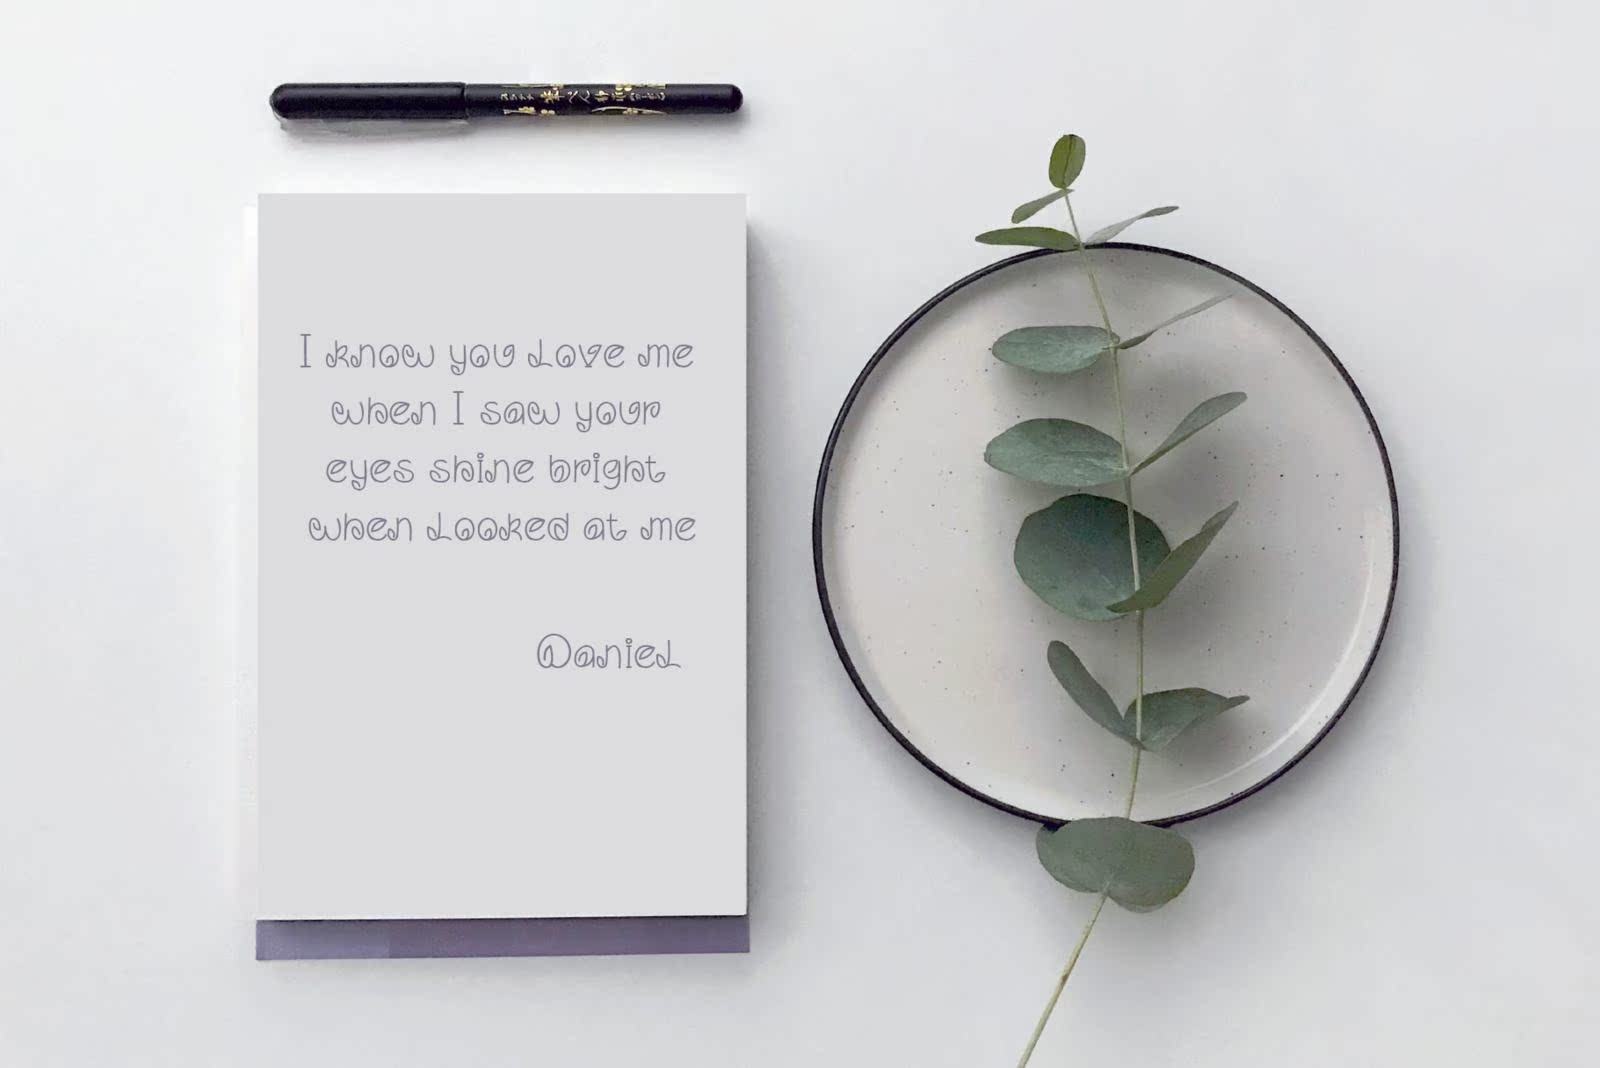 I know you love me
when I saw your
eyes shine bright
when looked at me
Daniel